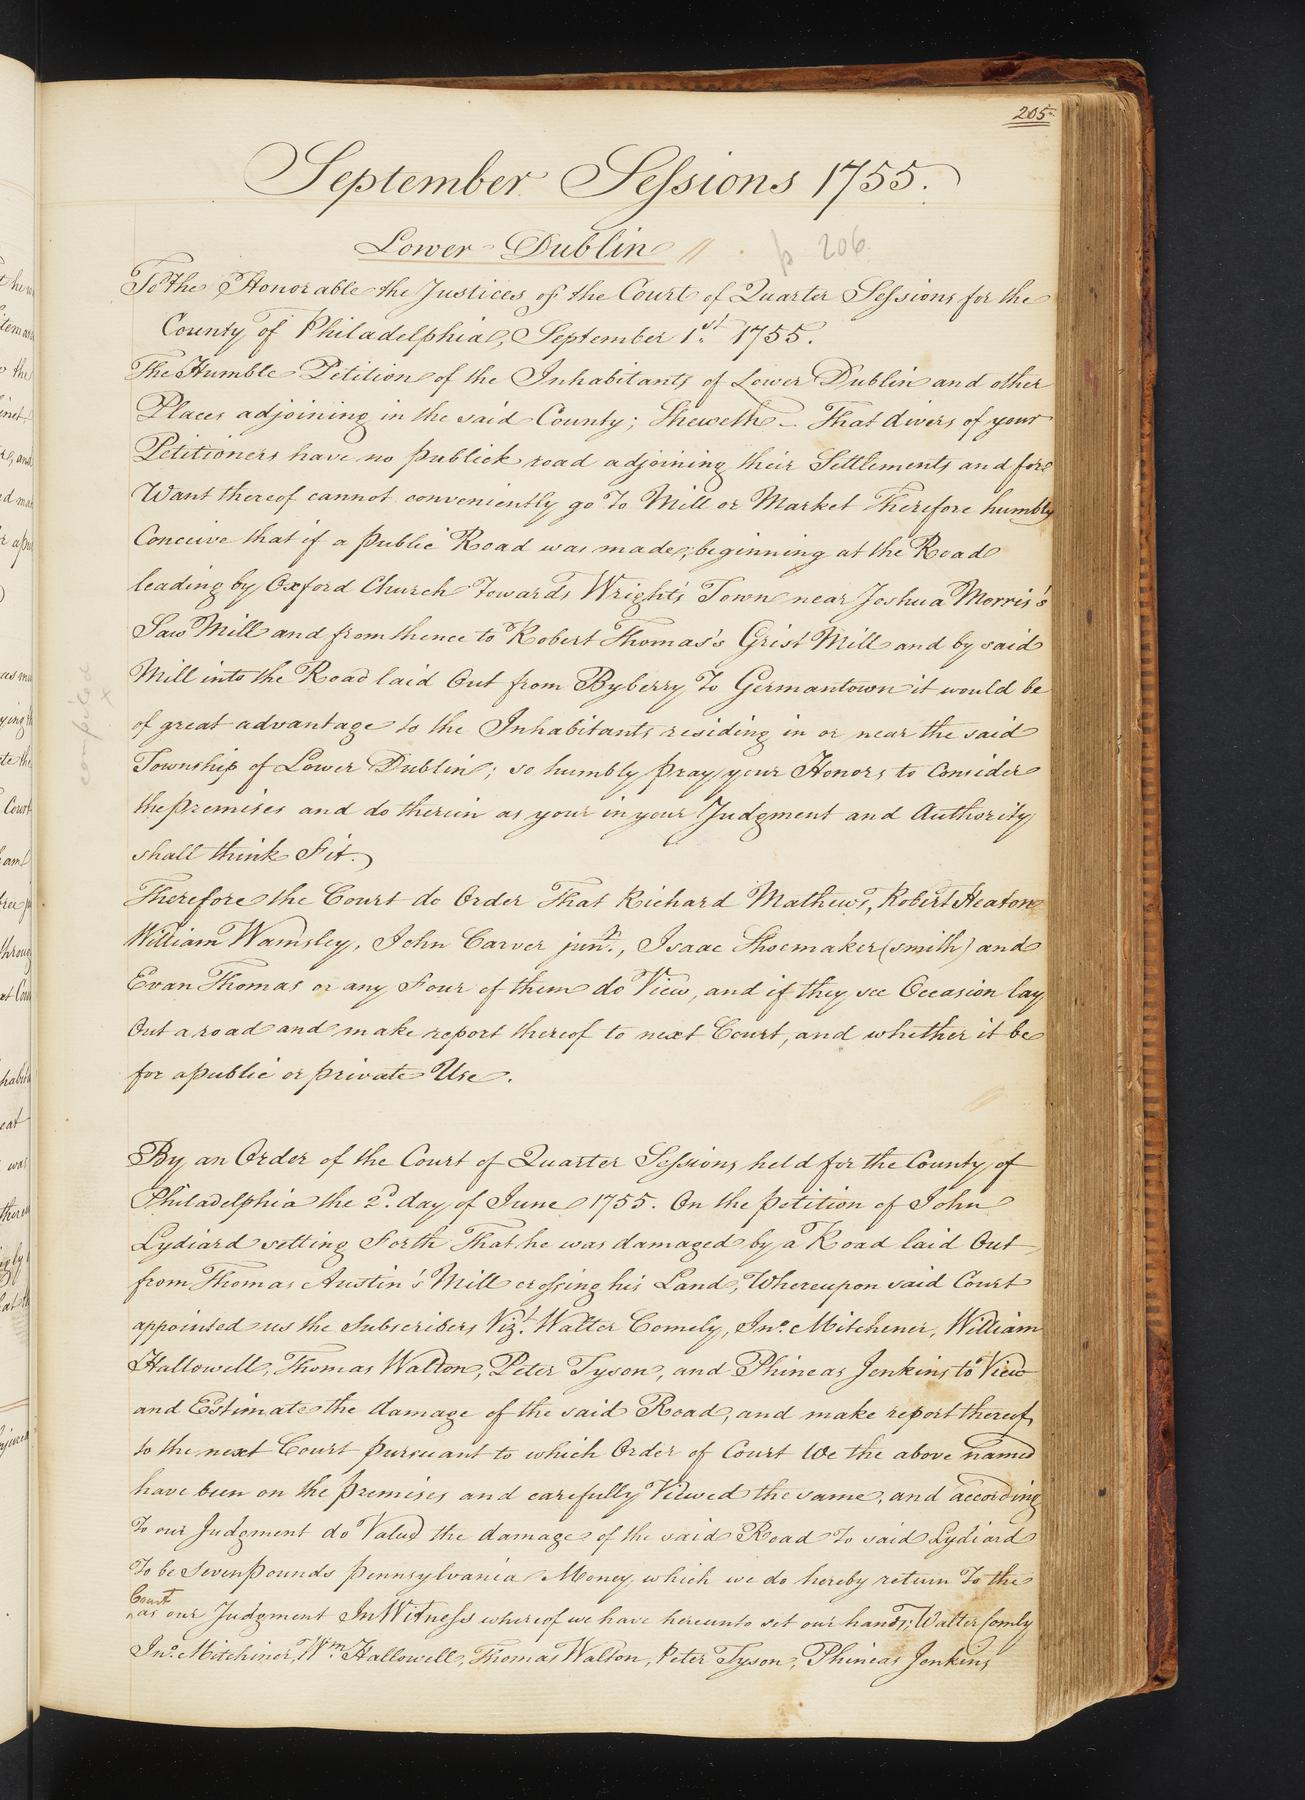 205
September Sessions 1755.
Lower Dublin // p 206.
To the Honorable the Justices of the Court of Quarter Sessions for the
County of Philadelphia, September 1.st 1755.
The Humble Petition of the Inhabitants of Lower Dublin and other
Places adjoining in the said County; Sheweth - That divers of your
Petitioners have no publick road adjoining their Settlements and for
Want thereof cannot conveniently go To Mill or Market Therefore humbly
Conceive that if a public Road was made, beginning at the Road
leading by Oxford Church Towards Wright's Town near Joshua Morris's
Saw Mill and from thence to Robert Thomas's Grist Mill and by said
Mill into the Road laid Out from Byberry To Germantown it would be
of great advantage to the Inhabitants residing in or near the said
Township of Lower Dublin; so humbly pray your Honors to Consider
the premises and do therein as your in your Judgment and Authority
shall think Fit.
compiled
x
Therefore the Court do Order That Richard Mathews, Robert Heaton
William Wamsley, John Carver jun.r, Isaac Shoemaker (smith) and
Evan Thomas or any Four of them do View, and if they see Occasion lay
Out a road and make report thereof to next Court, and whether it be
for a public or private Use.
By an Order of the Court of Quarter Sessions held for the County of
Philadelphia the 2.d day of June 1755. On the petition of John
Lydiard setting Forth That he was damaged by a Road laid Out
from Thomas Austin's Mill crossing his Land, Whereupon said Court
appointed us the Subscribers Viz.t Walter Comely, Jn.o Mitchener, William
Hallowell, Thomas Walton, Peter Tyson, and Phineas Jenkins to View
and Estimate the damage of the said Road, and make report thereof
to the next Court pursuant to which Order of Court We the above named
have been on the premises and carefully Viewed the same, and according
To our Judgment do Value the damage of the said Road To said Lydiard
To be Seven pounds Pennsylvania Money, which we do hereby return To the
Court
as our Judgment In Witness whereof we have hereunto set our hands; Walter Comly
Jn.o Mitchiner, W.m Hallowell, Thomas Walton, Peter Tyson, Phineas Jenkins